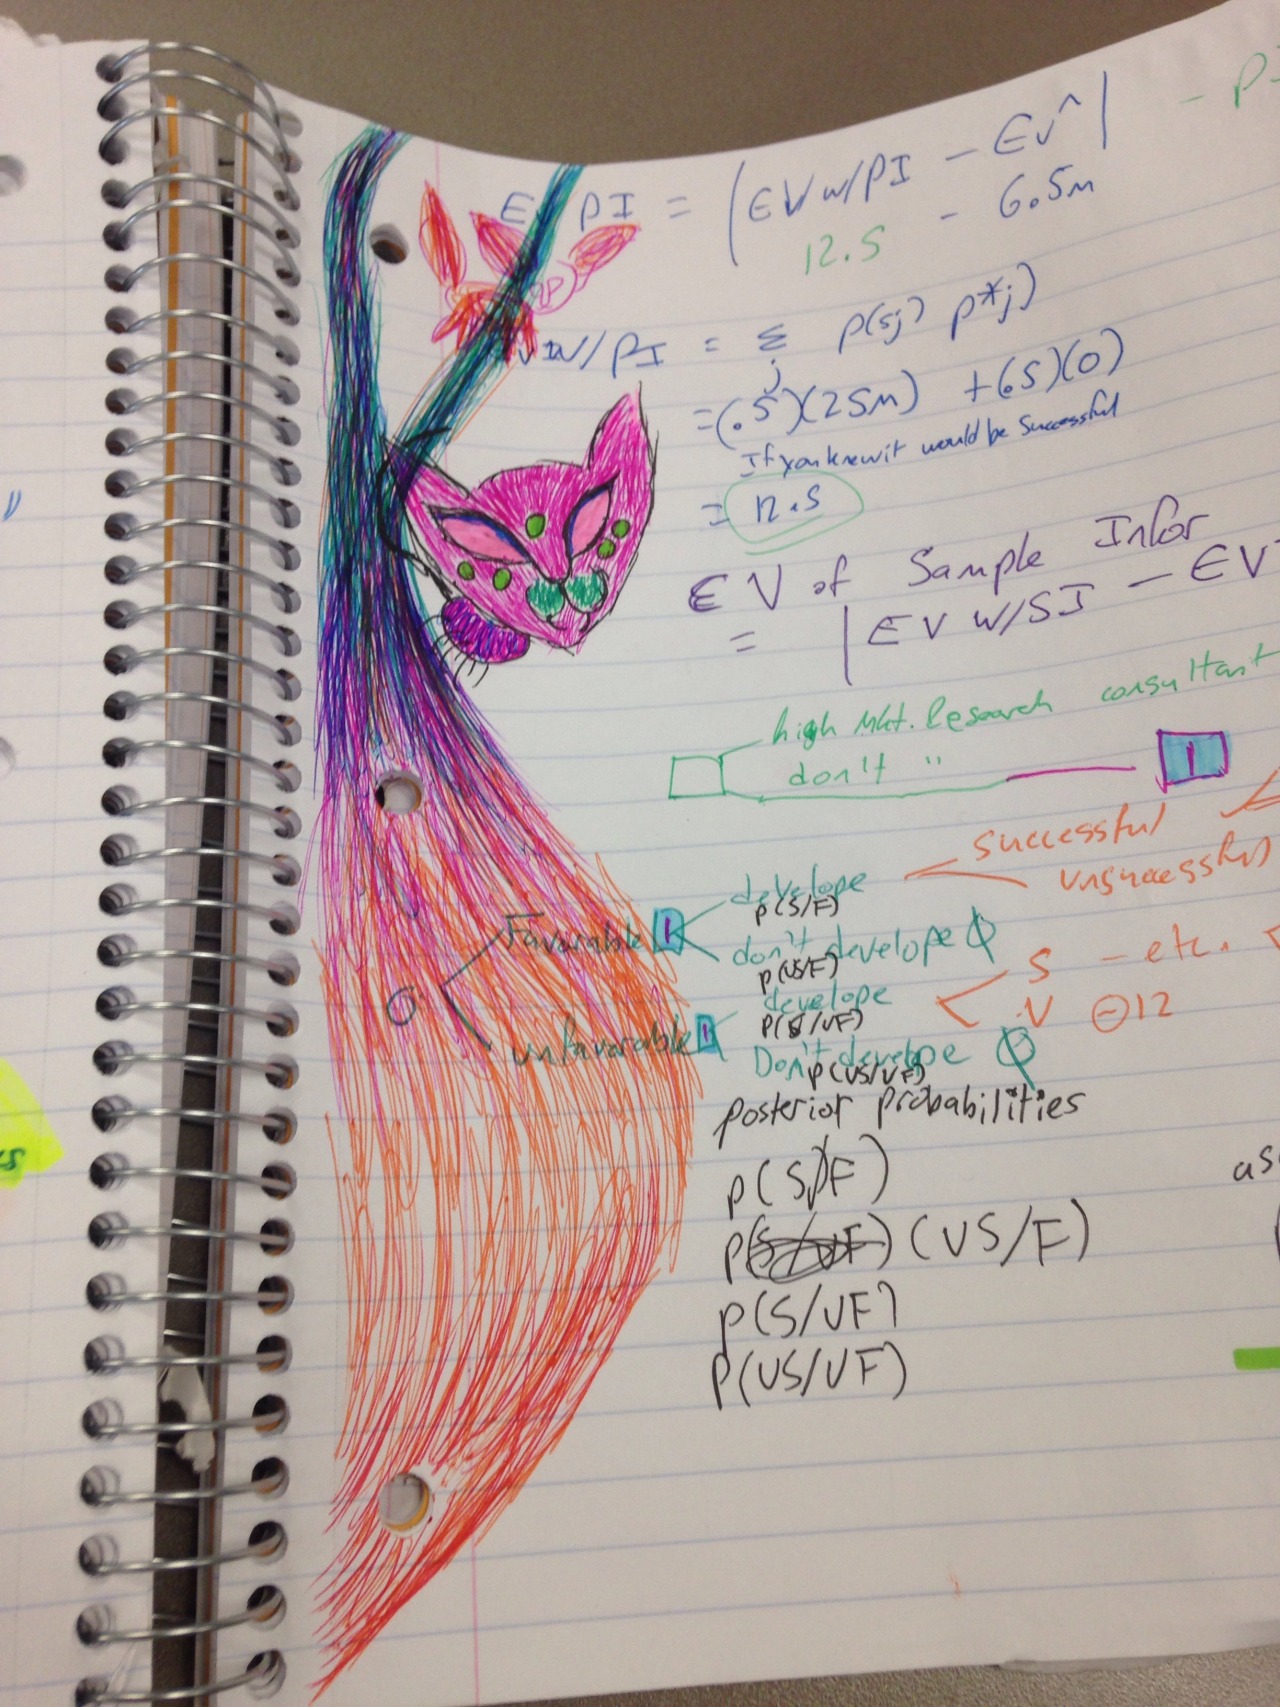 PI = |EV w/PI - EV^|
12.5 - 6.5m
w/PI = Σ p(sj) p*j)
j
=(.5)(25m) +(.5)(0)
If you knew it would be successful
= 12.5
EV of Sample Infor
= |EV w/SI - EV
high Mkt. Research consultant
don't "
successful
unsuccessful
develope
p(S/F)
Favorable
don't develope
p(US/F)
S - etc.
develope
p(S/UF)
U ⊖12
unfavorable
Don't develope
p(US/UF)
posterior probabilities
p(S/F)
p(US/F)
p(S/UF)
P(US/UF)